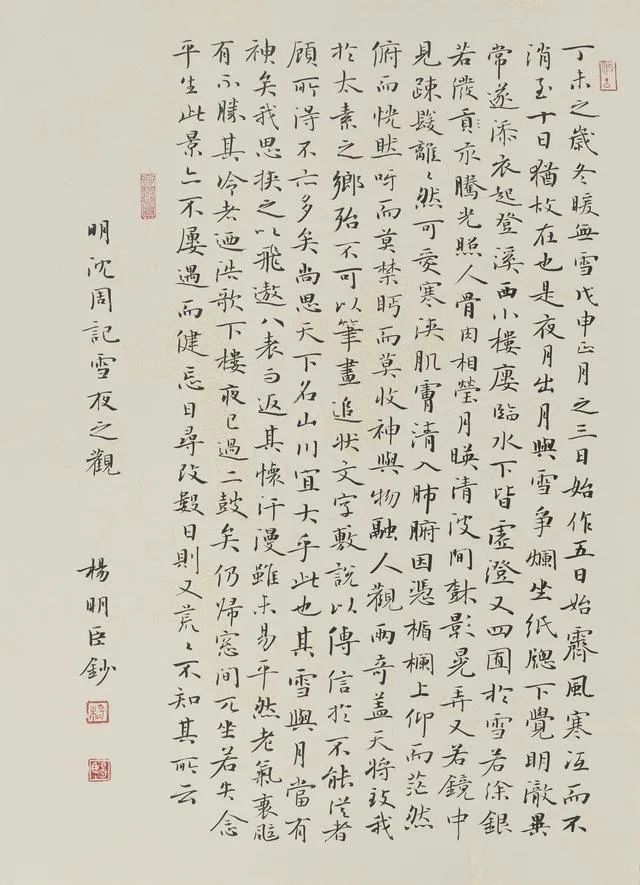 丁未之歲冬暖無雪戊申正月之三日始作五日始霽風寒沍而不
消至十日猶故在也是夜月出月與雪爭爛坐紙牕下覺明澈異
常遂添衣起登溪西小樓樓臨水下皆虛澄又四囿於雪若塗銀
若潑貢汞騰光照人骨肉相瑩月暎清波間樹影晃弄又若鏡中
見疎髮離〻然可愛寒浹肌膚清入肺腑因憑楯欄上仰而茫然
俯而恍然呀而莫禁眄而莫收神與物融人觀兩奇蓋天將致我
於太素之鄉殆不可以筆畫追狀文字敷說以傳信於不能從者
顧所得不亦多矣尚思天下名山川宜大乎此也其雪與月當有
神矣我思挾之以飛遨八表而返其懷汗漫雖未易平然老氣衰颯
有不勝其冷者迺浩歌下樓夜已過二鼓矣仍歸窓間兀坐若失念
平生此景亦不屢遇而健忘日尋改數日則又荒〻不知其所云
明沈周記雪夜之觀
楊明臣鈔